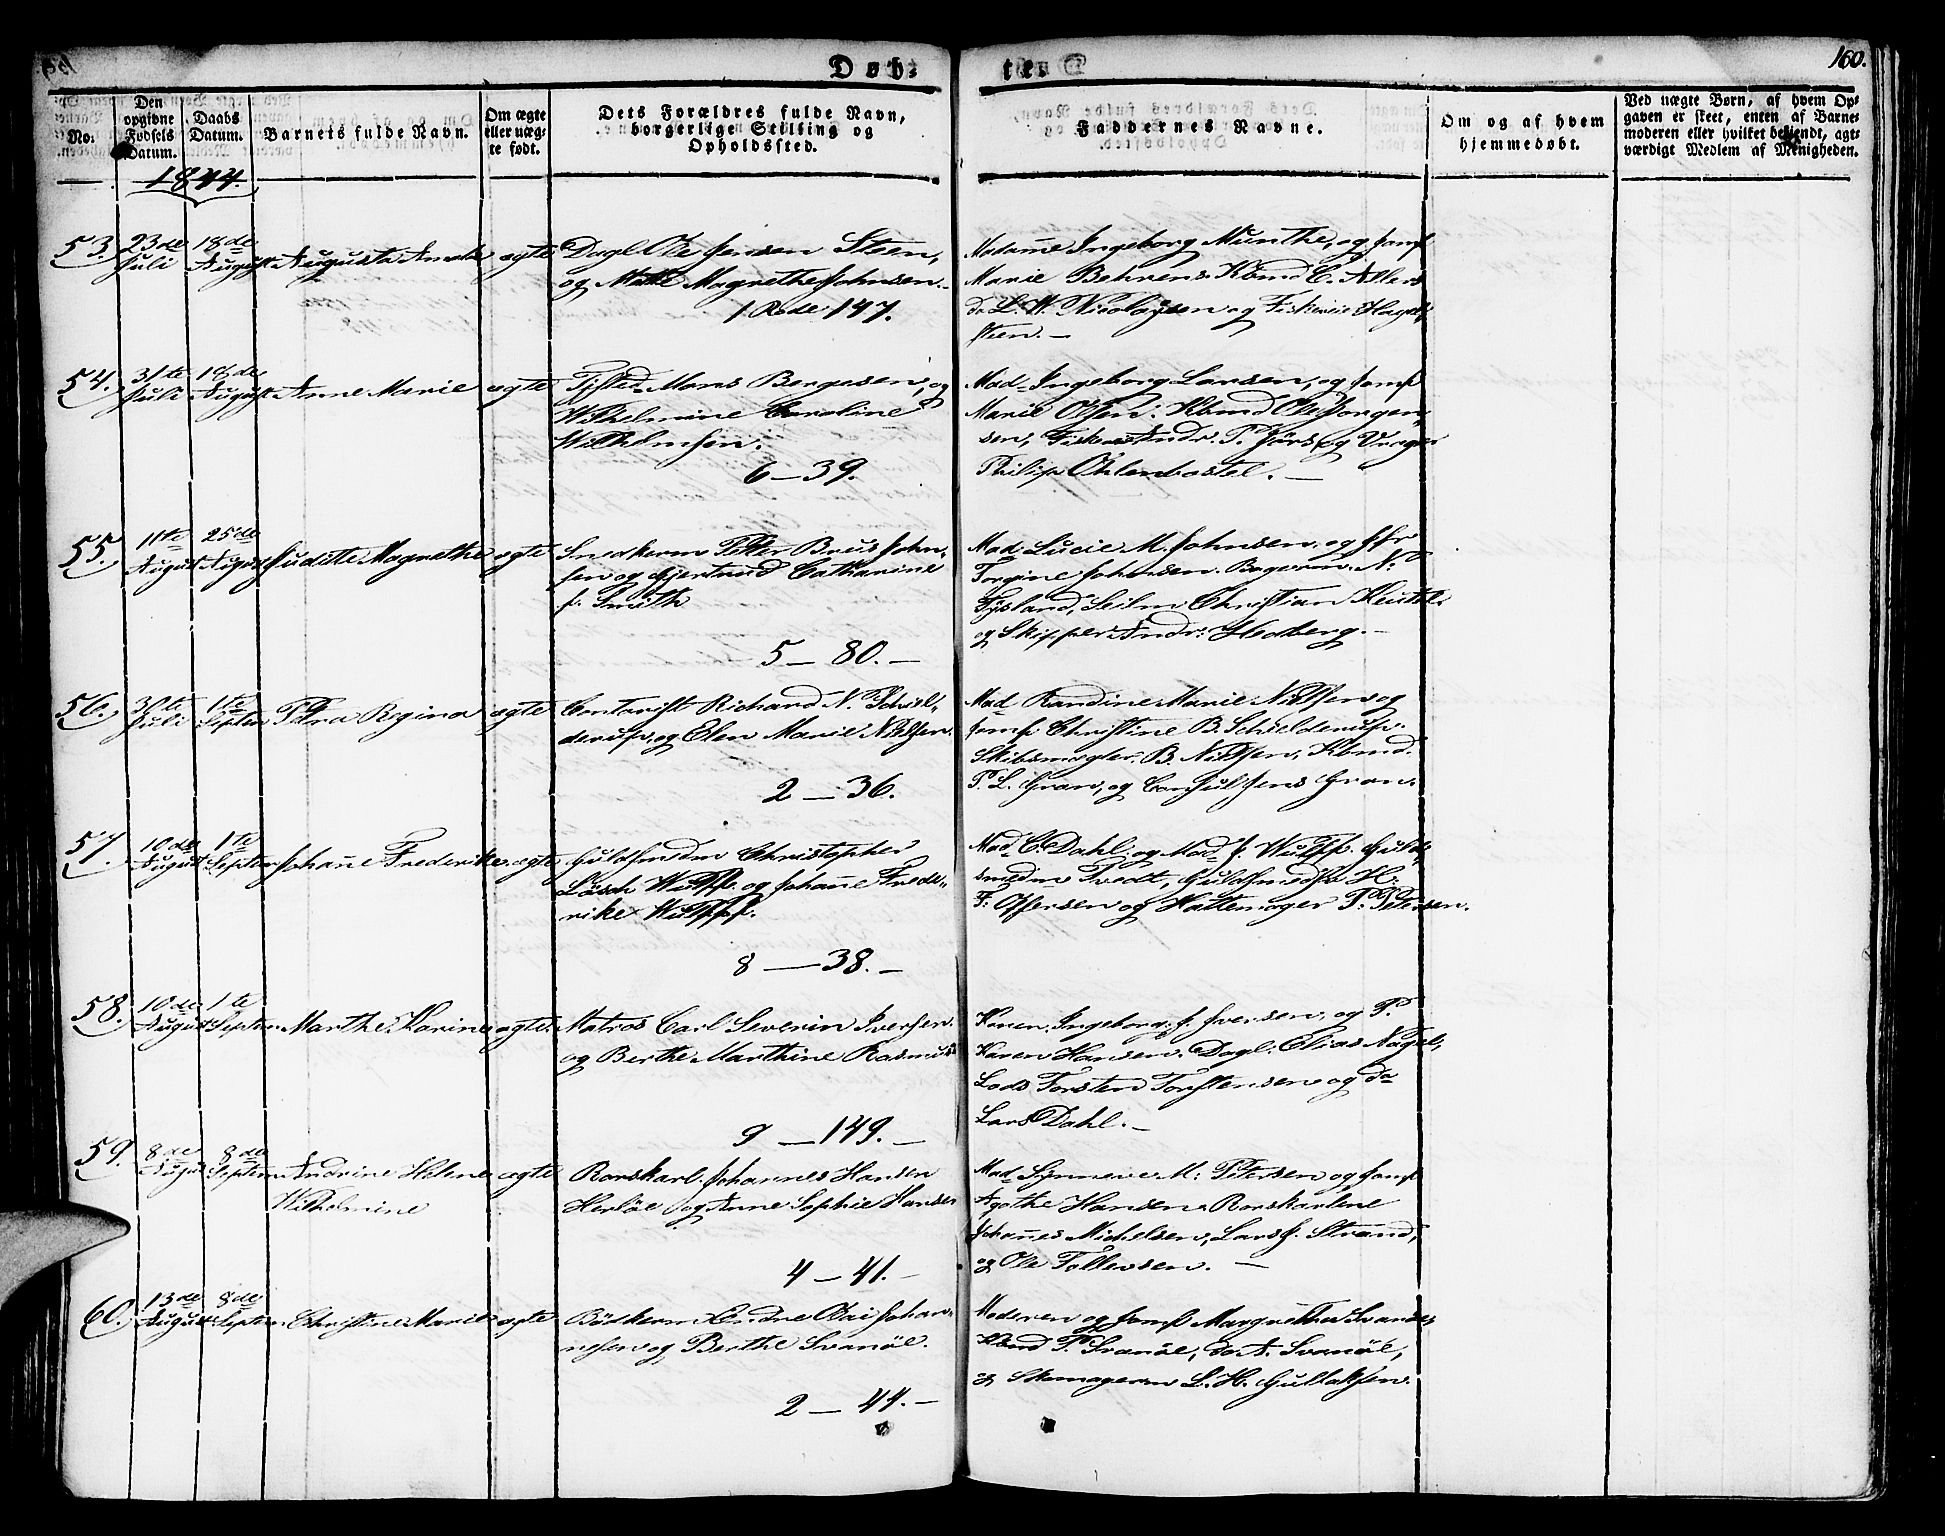 Døb-
ten
160.
No.
Den opgivne Fødsels Datum.
Daabs Datum.
Barnets fulde Navn.
Om ægte eller uægte født.
Dets Forældres fulde Navn, borgerlige Stilling og Opholdssted.
Faddernes Navne.
Om og af hvem hjemmedøbt.
Ved uægte Børn, af hvem Opgaven er skeet, enten af Barnemoderen eller hvilket bekjendt, agtværdigt Medlem af Menigheden.
1844.
53. 23de Juli 18de August Augusta Amalia ægte Dagl. Ole Jensen Steen,
og Mette Magrethe Johnsen.
1 Rode 147.
Madame Ingeborg Munthe, og Jomf
Marie Behrens. Kbmd C. Allers
do L. W. Nicolaysen og Fiskeveie Hagel-
steen.
54. 31te Juli 18de August Anne Marie ægte Mons Bergesen, og
Wilhelmine Caroline
Wilhelmsen.
6 — 39.
Mad Ingeborg Larsen, og Jomf
Marie Olsen. Kbmd Ole Jørgen-
sen, Andr. P. og Vrager
Philip Ohlenbostel.
55. 11te August 25de August Juditte Magrethe ægte Snedkerm Petter Brus John-
sen og Gjertrud Catharine
f. Smith
5 — 80.
Mad Lucie M. Johnsen, og Jfr
Torgine Johnsen. Bagerm. N.
Tysland, Seilm Christian
og Skipper Andr: Hedberg.
56. 30te Juli 1te Septem Petra Regina ægte Contorist Richard N. Schiel-
derup, og Elen Marie Nilssen.
2 — 36.
Mad Randine Marie Nilssen og
Jomf Christine B. Schielderup.
Skibsmægler B. Nilssen, Kbmd.
P. L. Gran, og Consul Jens Gran.
57. 10de August 1te Septem Johanne Frederike ægte Guldsmedm Christopher
Wulff og Johanne Frede-
rike Wulff.
8 — 38.
Mad C. Dahl og Mad J. Wulff. Guld-
smedm Tvedt, Guldsmeds H:
F. Offersen og Hattemager P. Petersen.
58. 10de August 1te Septem Marthe Karine ægte Matros Carl Severin Iversen.
og Berthe Marthine Rasmus
9 — 149.
Karen Ingeborg J. Iversen, og P.
Karen Hansen. Dagl. Elias Nagel,
Lods Torsten Torstensen og do
Lars Dahl.
59. 8de August 8de Septem Andrine Helene ægte Rorskarl Johannes Hansen
Wilhelmine
Herløe og Anne Sophie Hansen
4 — 41.
Mad Synneve M. Petersen og Jomf
Agathe Hansen. Rorskarlene
Johannes Michelsen, Lars J. Strand,
og Ole Tollevsen.
60. 13de August 8de Septem Christine Marie ægte Bødkerm Endre Olai Johan-
nesen og Berthe Svanöe.
2 — 44.
Moderen og Jomf Margrethe Svanöe
Kbmd P. Svanöe, do A. Svanöe,
og Skomagerm L. H. Gullaksen.